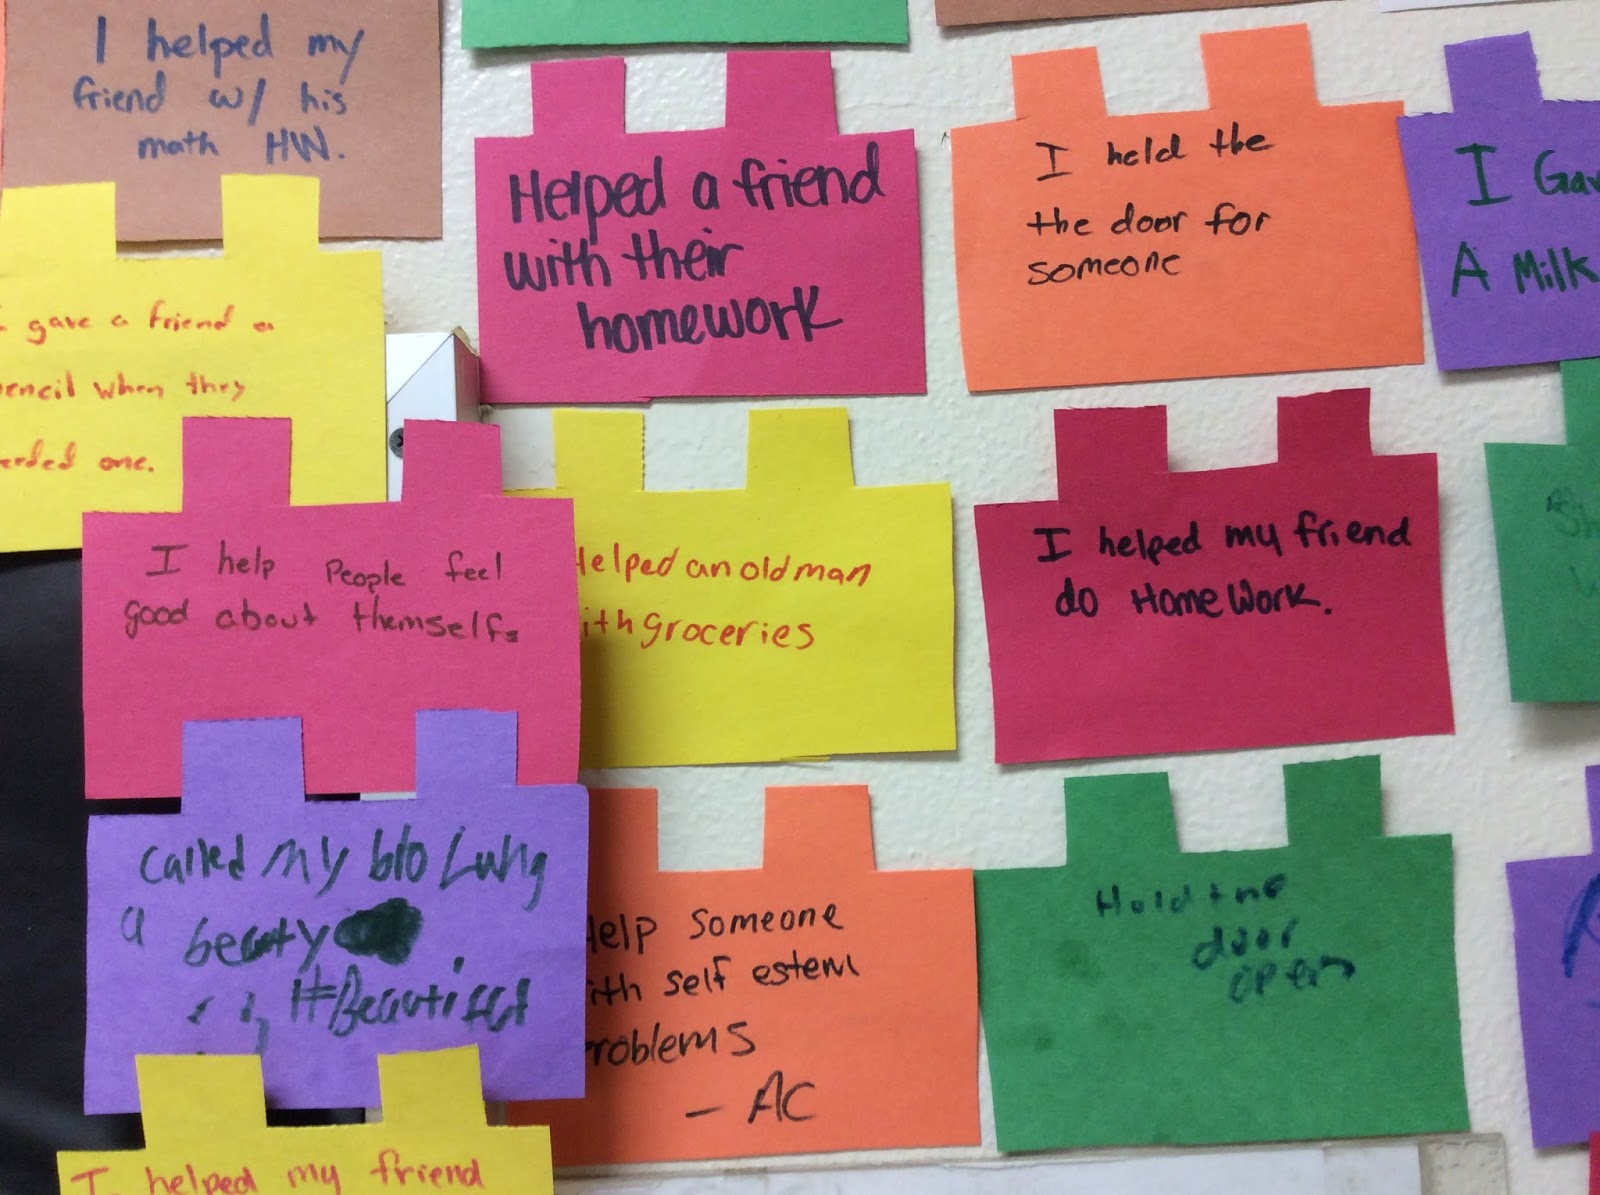 I helped my
friend w/ his
math HW.
Helped a friend
with their
homework
I held the
the door for
someone
I Gav
A Milk
gave a friend a
encil when they
eeded one.
I help People feel
good about themselfs
elped an old man
ith groceries
I helped my friend
do HomeWork.
called my bro
a beauty
elp someone
ith self estem
roblems
- AC
Hold the
door
open
I helped my friend